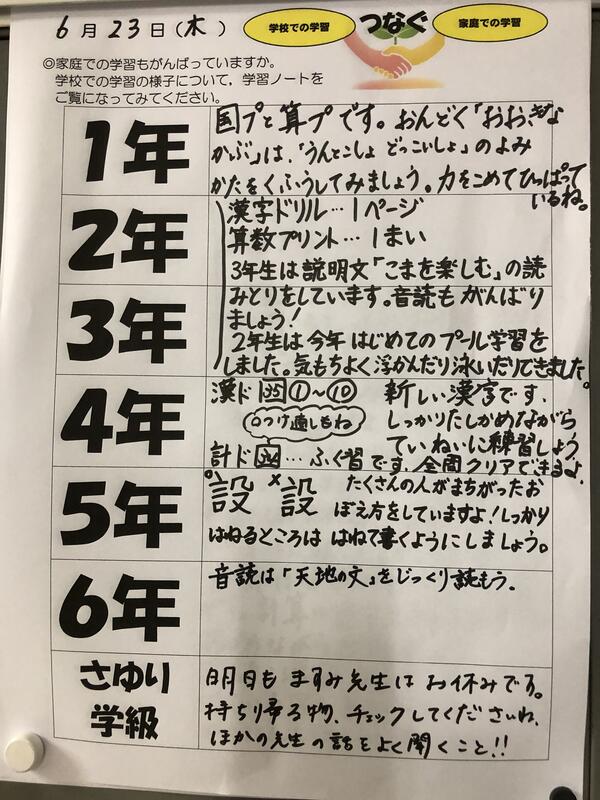 6月23日(木)
学校での学習
つなぐ
家庭での学習
◎家庭での学習もがんばっていますか。
学校での学習の様子について，学習ノートを
ご覧になってみてください。
1年
国プと算プです。おんどく「おおきな
かぶ」は、「うんとこしょ どっこいしょ」のよみ
かたをくふうしてみましょう。力をこめてひっぱって
いるね。
2年
漢字ドリル…1ページ
算数プリント…1まい
3年生は説明文「こまを楽しむ」の読
3年
みとりをしています。音読もがんばり
ましょう!
2年生は今年はじめてのプール学習を
しました。気もちよく浮かんだり泳いだりできました。
4年
漢ド35①〜⑩ 新しい漢字です、
しっかりたしかめながら
○つけ直しもね
ていねいに練習しょう
計ド34…ふく習です、全問クリアできるよ、
5年
°設 ×設 たくさんの人がまちがったお
ぼえ方をしていますよ!しっかり
はねるところは はねて書くようにしましょう。
6年
音読は「天地の文」をじっくり読もう。
さゆり
学級
明日も ますみ先生は お休みです。
持ち帰る物、チェックしてくださいね、
ほかの先生の話をよく聞くこと!!